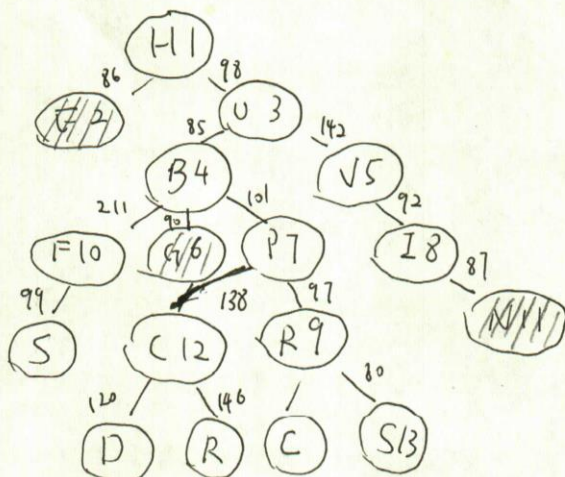 H1
86 98
U 3
85 142
B4 V5
211 90 101 92
F10 G6 P7 I8
87
99 138 97
N11
S C12 R9
120 146 80
D R C S13